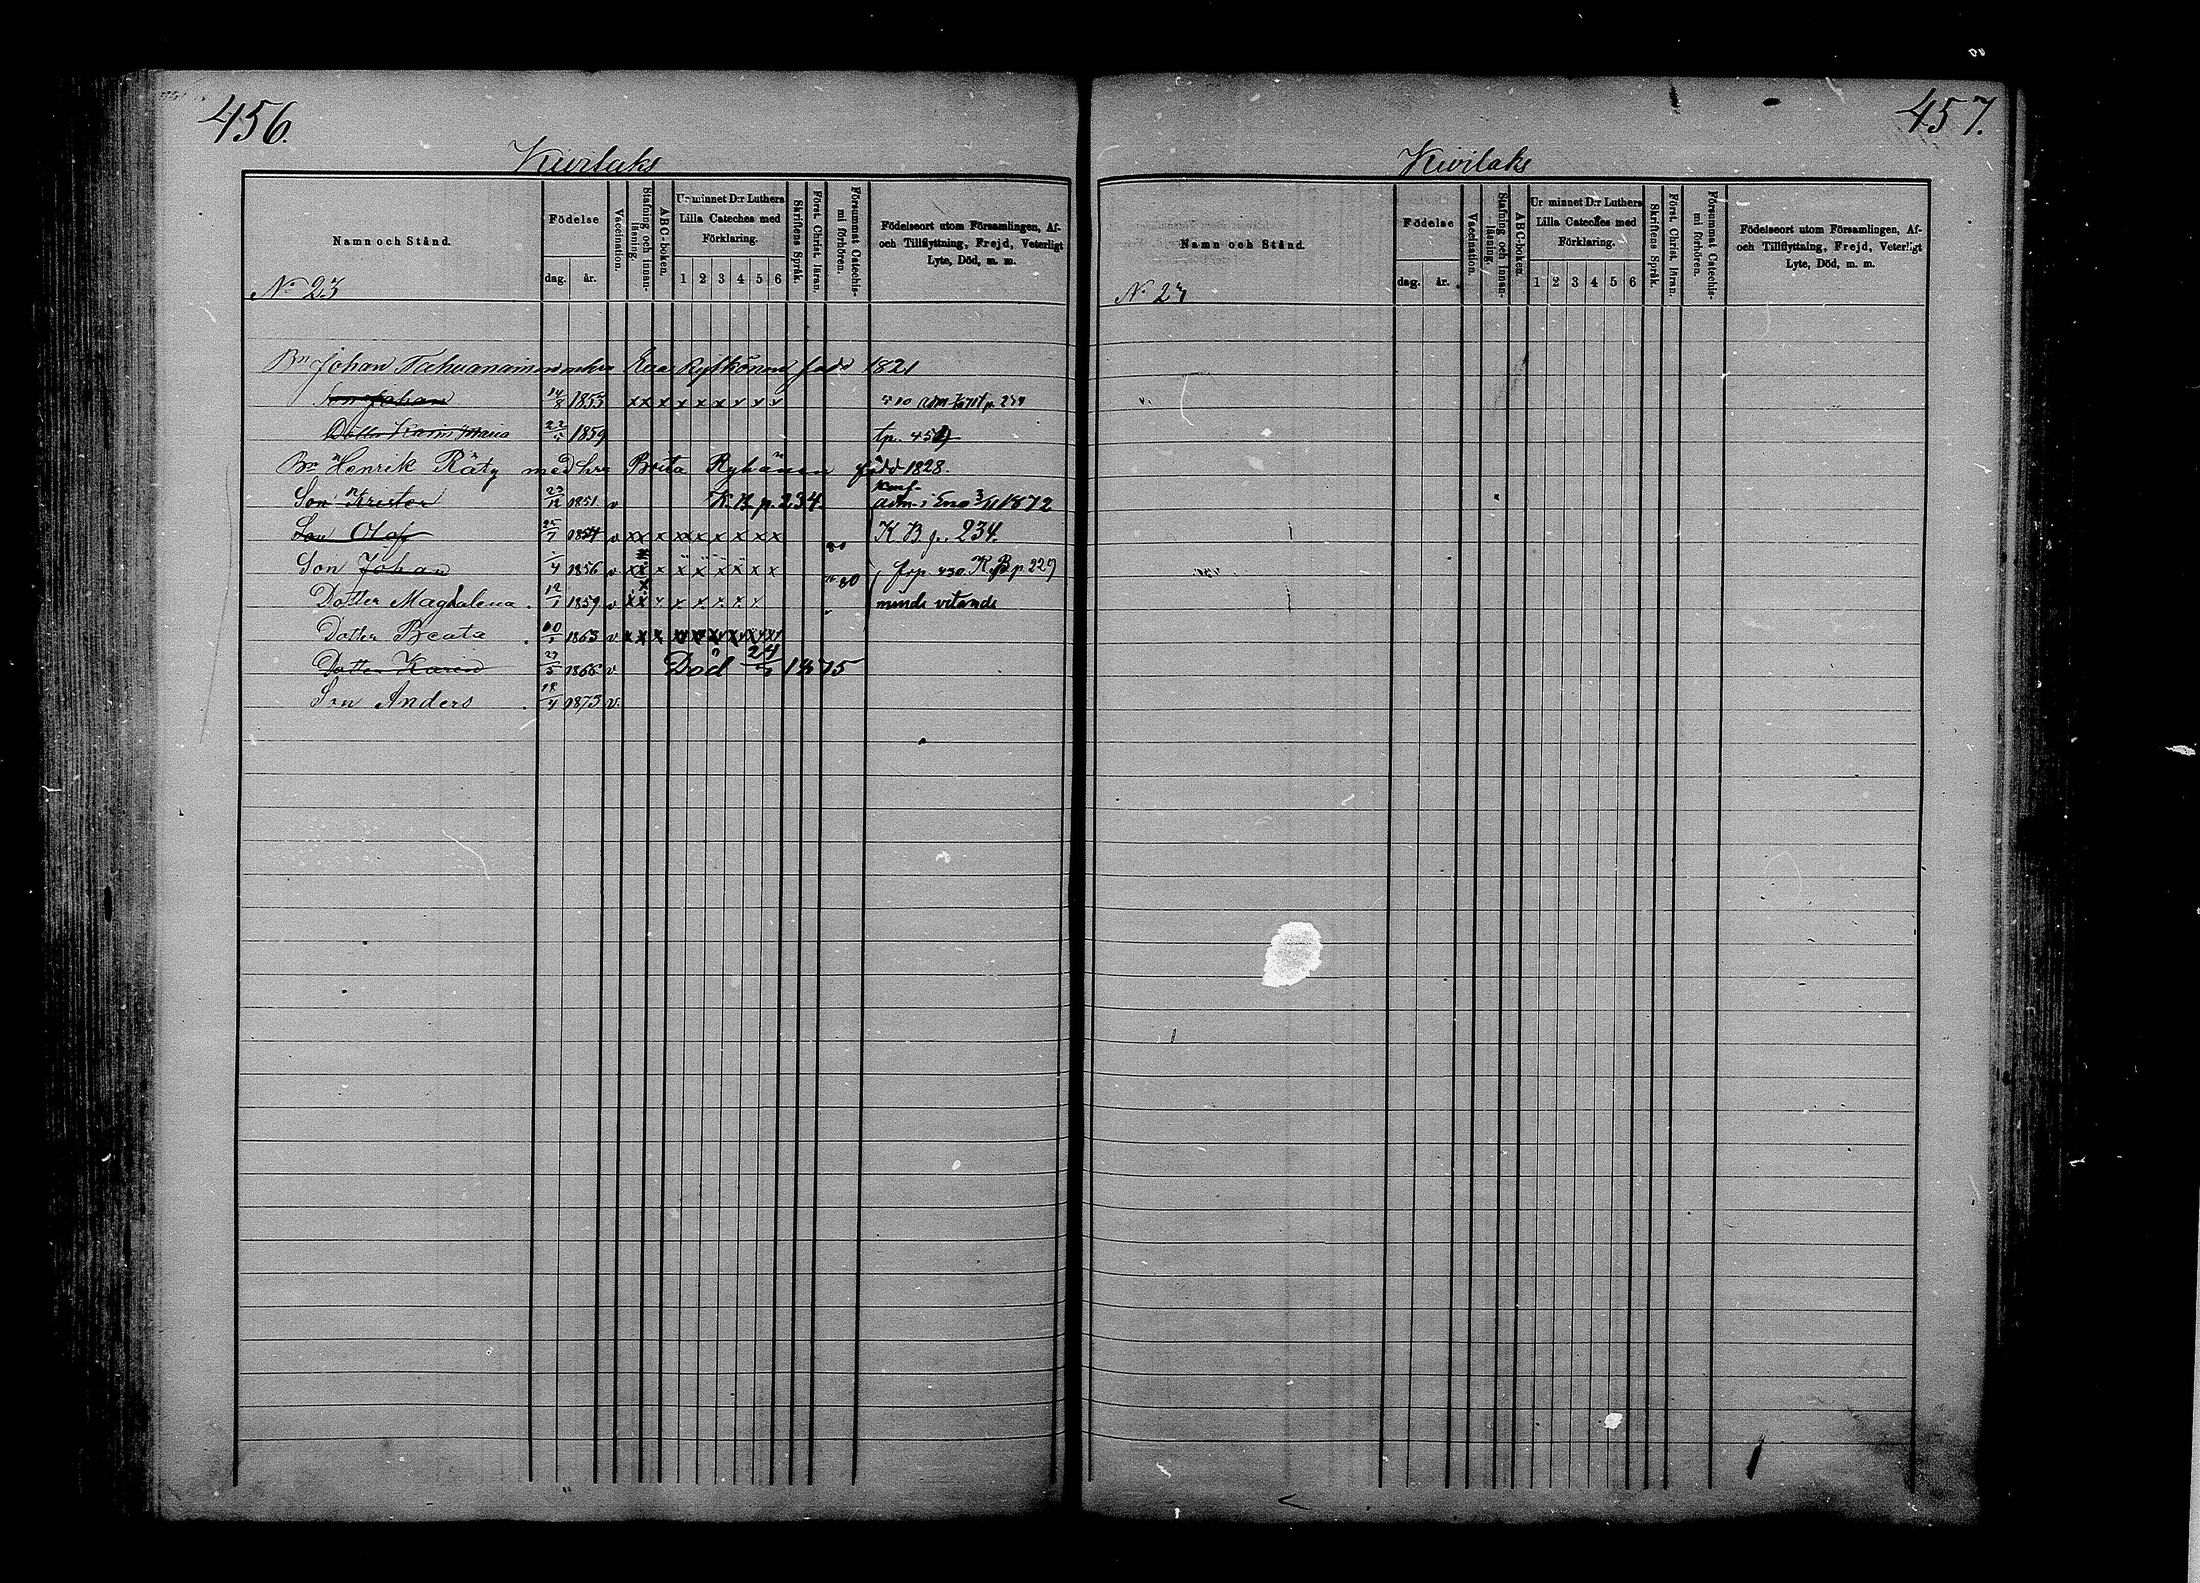 456.
Kivilaks
Namn och Stånd.
Födelse
dag. år.
Vaccination.
Stafning och innanläsning.
ABC-boken.
Ur minnet D:r Luthers Lilla Cateches med Förklaring.
1 2 3 4 5 6
Skriftens Språk.
Först. Christ. läran.
Försummat Catechismi förhören.
Födelseort utom Församlingen, Af- och Tillflyttning, Frejd, Veterligt Lyte, Död, m. m.
No 23
Bn Johan Tahvanainen m hu Eva Kylkönen född 1821
Son Johan 14/8 1855 x x x x x x x x x
Dotter Karin Maria 22 1859 tp. 459
Bn Henrik Räty med hu Brita Ryhänen född 1828.
Son Krister 23/12 1851 v K. B. p. 234. Konf. adm. i Eno 3/11 1872
Son Olof 25/7 1854 v x x x x x x x x x K B p. 234.
Son Johan 4 1856 v x x x x x x x x x frp. 430 K B p 229
Dotter Magdalena 12/1 1859 v x x x x x x x x minde vetande
Dotter Beata 1863 v x x x x x x x x x
Dotter Karin 29/5 1866 v Död 24 1875
Son Anders 18/4 1875 v.
457.
Kivilaks
Namn och Stånd.
Födelse
dag. år.
Vaccination.
Stafning och innanläsning.
ABC-boken.
Ur minnet D:r Luthers Lilla Cateches med Förklaring.
1 2 3 4 5 6
Skriftens Språk.
Först. Christ. läran.
Försummat Catechismi förhören.
Födelseort utom Församlingen, Af- och Tillflyttning, Frejd, Veterligt Lyte, Död, m. m.